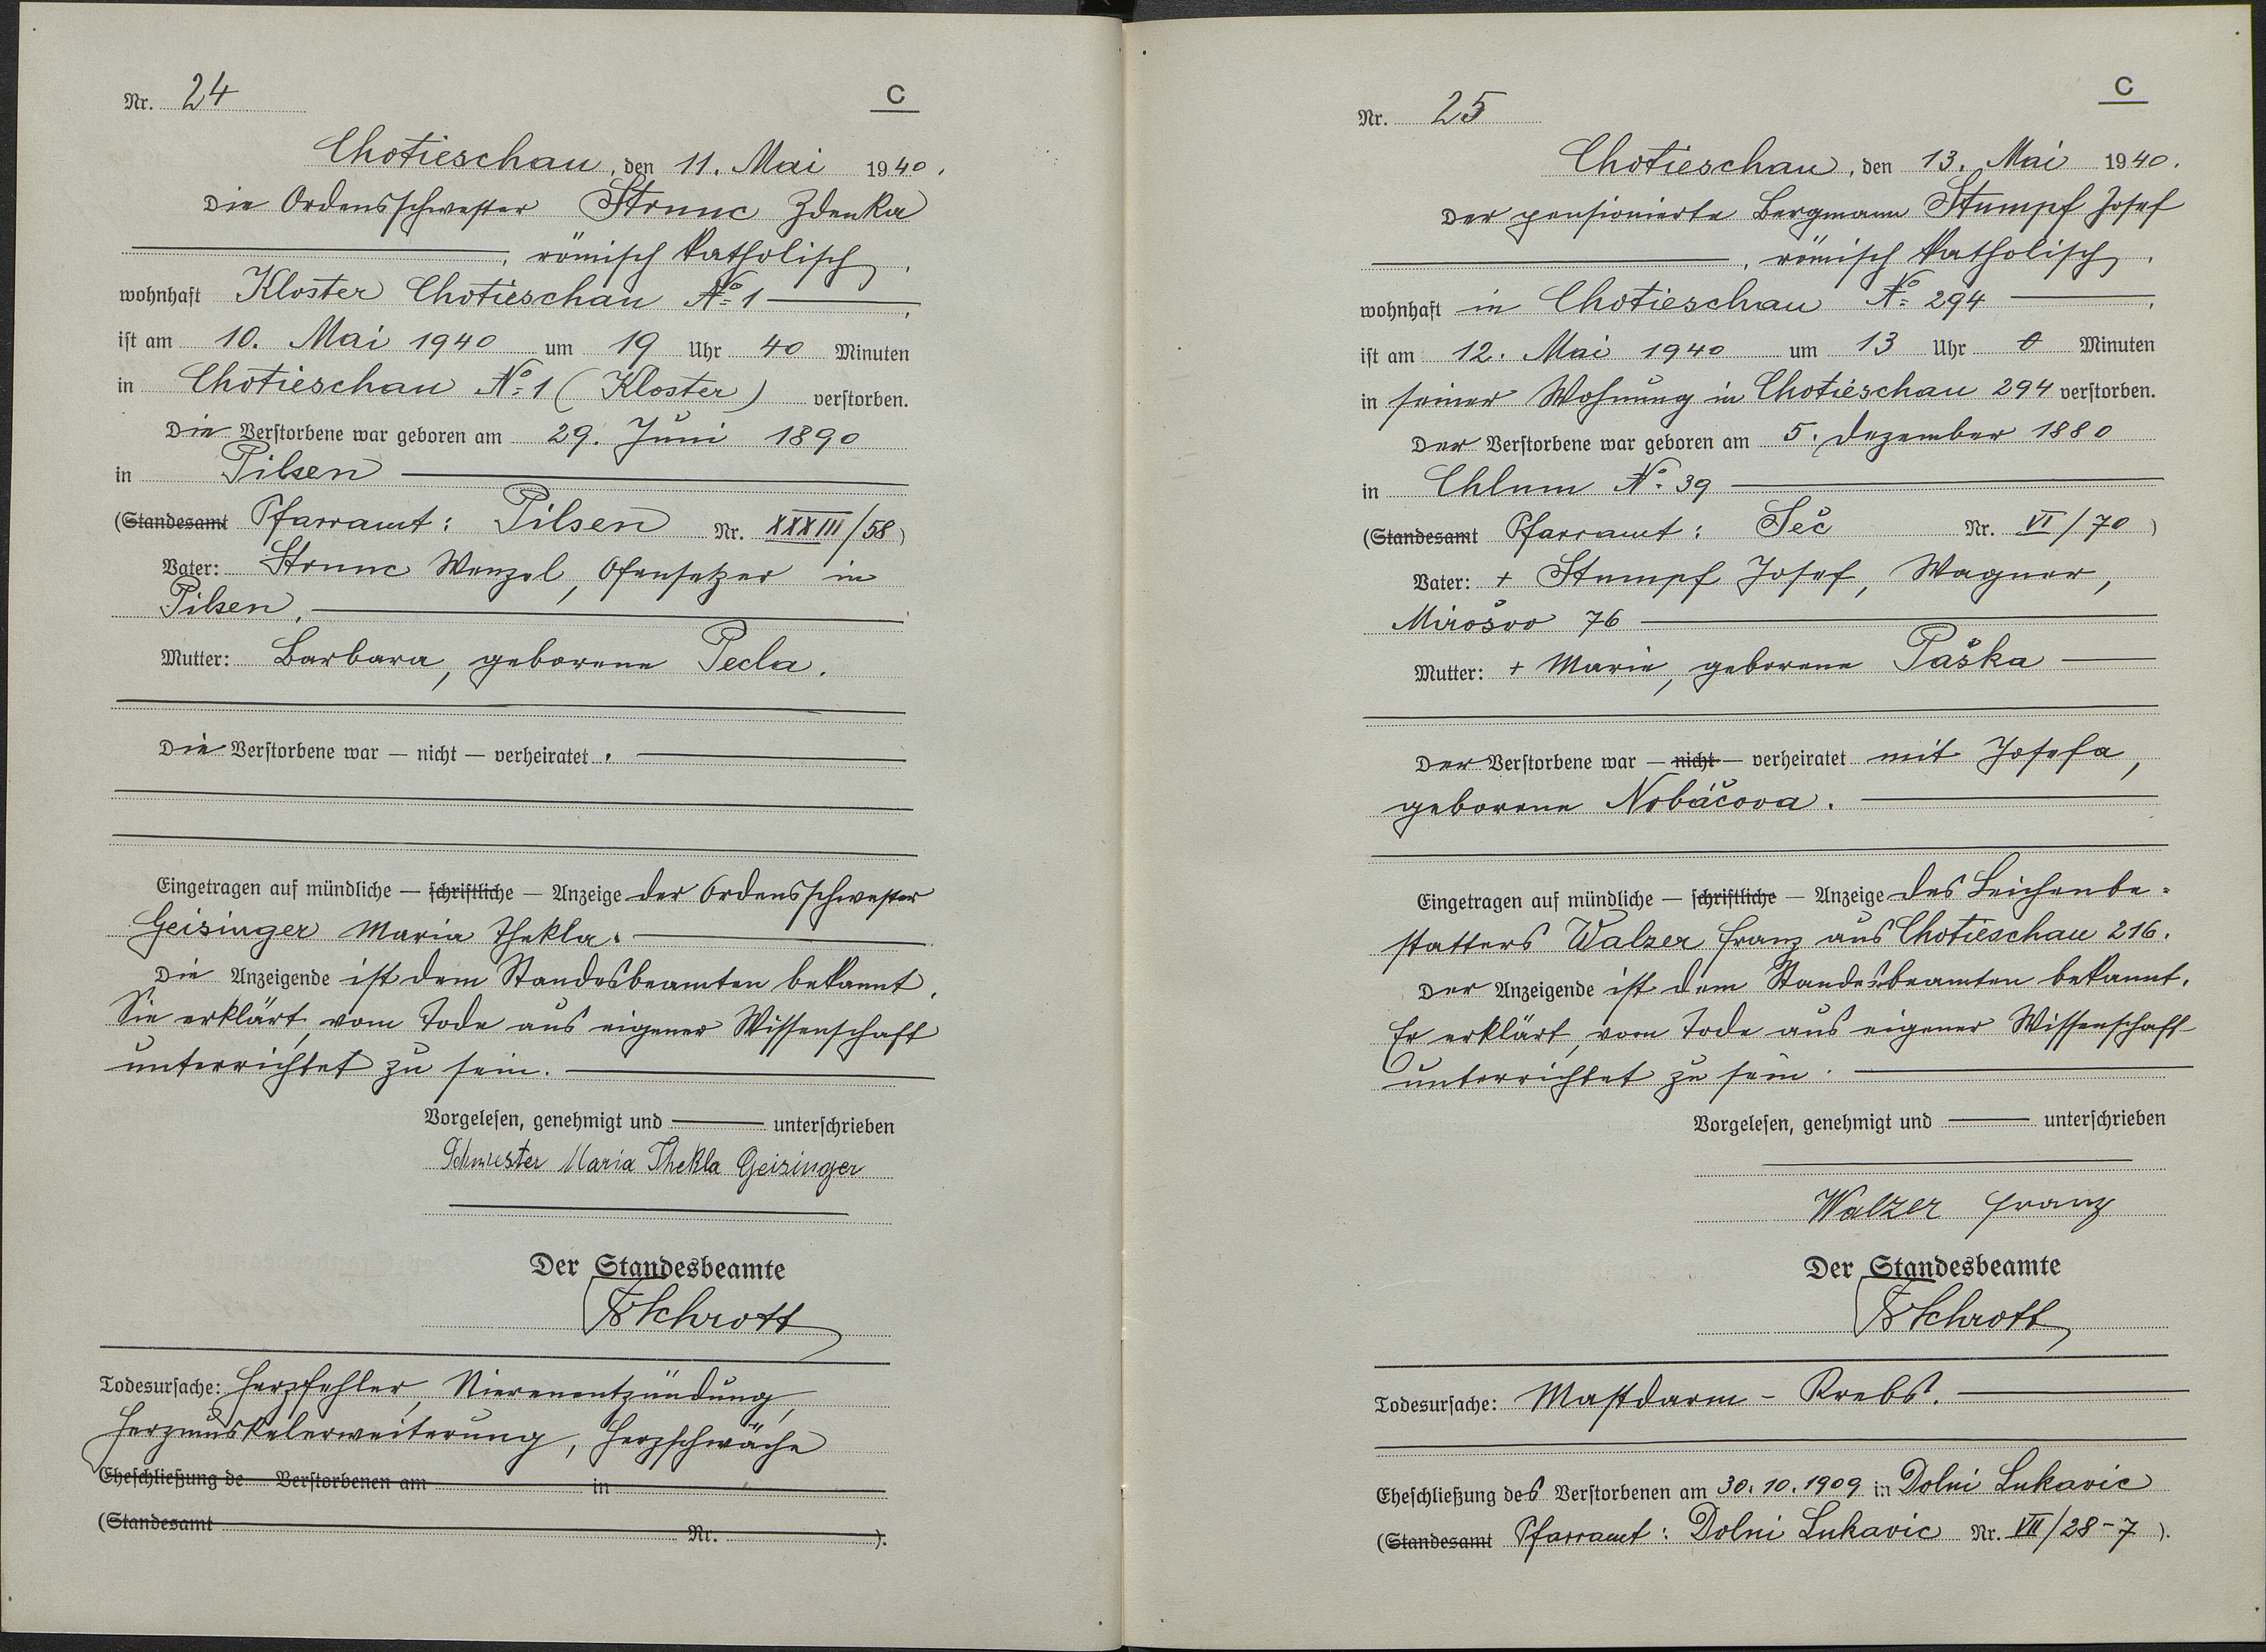 Nr. 24
C
Chotieschau, den 11. Mai 1940.
Die Ordensschwester Strunc Zdenka
, römisch katholisch,
wohnhaft Kloster Chotieschau No. 1
ist am 10. Mai 1940 um 19 Uhr 40 Minuten
in Chotieschau No. 1 (Kloster) verstorben.
Die Verstorbene war geboren am 29. Juni 1890
in Pilsen
(Standesamt Pfarramt: Pilsen Nr. XXXIII/58)
Vater: Strunc Wenzel, Ofensetzer in
Pilsen,
Mutter: Barbara, geborene Pecla.
Die Verstorbene war — nicht — verheiratet.
Eingetragen auf mündliche — schriftliche — Anzeige der Ordensschwester
Geisinger Maria Thekla.
Die Anzeigende ist dem Standesbeamten bekannt.
Sie erklärt, vom Tode aus eigener Wissenschaft
unterrichtet zu sein.
Vorgelesen, genehmigt und unterschrieben
Schwester Maria Thekla Geisinger
Der Standesbeamte
Schrott
Todesursache: Herzfehler, Nierenentzündung,
Herzmuskelerweiterung, Herzschwäche
Eheschließung de Verstorbenen am in
(Standesamt Nr. ).
Nr. 25
C
Chotieschau, den 13. Mai 1940.
Der pensionierte Bergmann Stumpf Josef
, römisch katholisch,
wohnhaft in Chotieschau No. 294
ist am 12. Mai 1940 um 13 Uhr 0 Minuten
in seiner Wohnung in Chotieschau 294 verstorben.
Der Verstorbene war geboren am 5. Dezember 1880
in Chlum No. 39
(Standesamt Pfarramt: Seč Nr. VI/70)
Vater: + Stumpf Josef, Wagner,
Mirošov 76
Mutter: + Marie, geborene Paška
Der Verstorbene war — nicht — verheiratet mit Josefa,
geborene Nobáčova.
Eingetragen auf mündliche — schriftliche — Anzeige des Leichenbe=
statters Walzer Franz aus Chotieschau 216.
Der Anzeigende ist dem Standesbeamten bekannt.
Er erklärt, vom Tode aus eigener Wissenschaft
unterrichtet zu sein.
Vorgelesen, genehmigt und unterschrieben
Walzer Franz
Der Standesbeamte
Schrott
Todesursache: Mastdarm - Krebs.
Eheschließung des Verstorbenen am 30.10.1909 in Dolni Lukavic
(Standesamt Pfarramt: Dolni Lukavic Nr. VII/28-7).